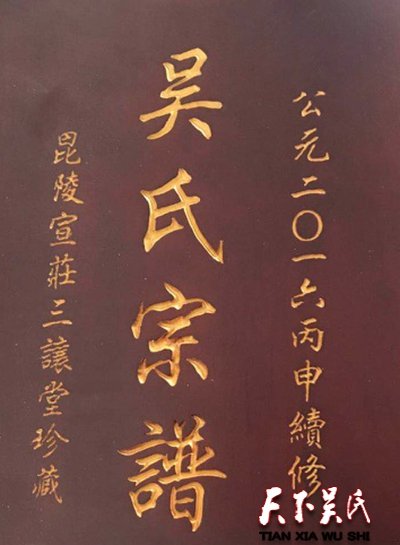 公元二〇一六丙申續修
吴氏宗譜
毘陵宣莊三讓堂珍藏
天下吴氏
TIAN XIA WU SHI